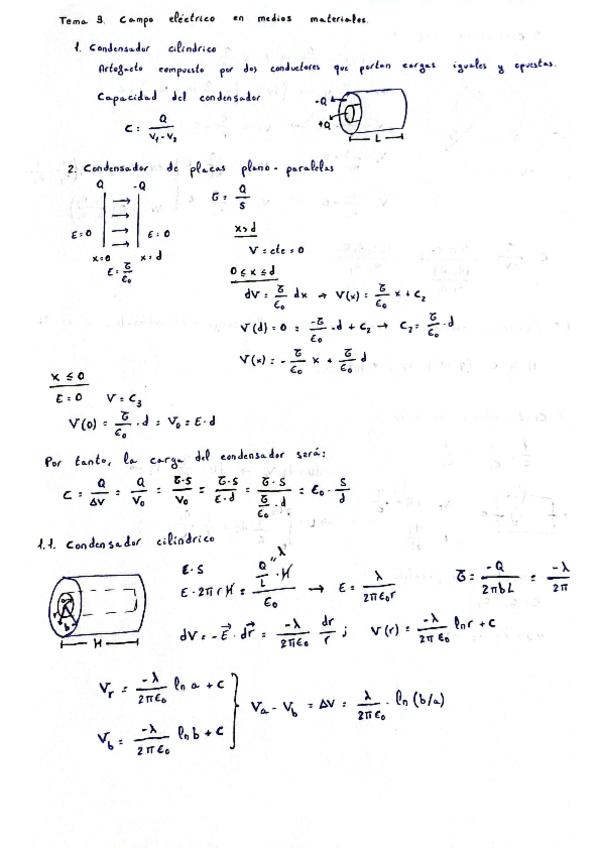 Tema 3. Campo eléctrico en medios materiales.
1. Condensador cilíndrico
Artefacto compuesto por dos conductores que portan cargas iguales y opuestas.
Capacidad del condensador
C = Q / (V₁ - V₂)
-Q
+Q
L
2. Condensador de placas plano-paralelas
Q -Q
E=0 E=0
x=0 x=d
E = σ/ε₀
σ = Q/S
x>d
V = cte = 0
0 ≤ x ≤ d
dV = σ/ε₀ dx → V(x) = σ/ε₀ x + C₂
V(d) = 0 = -σ/ε₀ · d + C₂ → C₂ = σ/ε₀ · d
V(x) = - σ/ε₀ x + σ/ε₀ d
x ≤ 0
E = 0 V = C₃
V(0) = σ/ε₀ · d = V₀ = E · d
Por tanto, la carga del condensador será:
C = Q/ΔV = Q/V₀ = σ·S/V₀ = σ·S/(E·d) = σ·S/(σ/ε₀ · d) = ε₀ · S/d
1.1. Condensador cilíndrico
a
b
H
E·S
E · 2πrH = (Q/L · H)/ε₀ → E = λ/(2πε₀r)
"λ
σ = -Q/(2πbL) = -λ/2π
dV = -E⃗ · dr⃗ = -λ/(2πε₀) dr/r ; V(r) = -λ/(2πε₀) ln r + C
Vr = -λ/(2πε₀) ln a + C
Vb = -λ/(2πε₀) ln b + C
Va - Vb = ΔV = λ/(2πε₀) · ln (b/a)